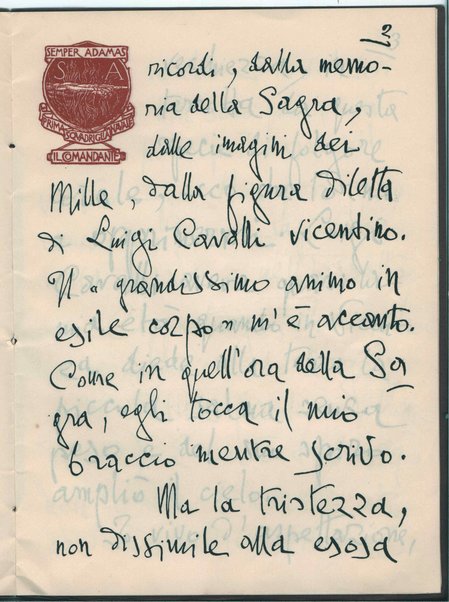 2
SEMPER ADAMAS
S A
PRIMA SQVADRIGLIA NAVALE
IL COMANDANTE
ricordi, dalla memo-
ria della Sagra,
dalle imagini dei
Mille, dalla figura diletta
di Luigi Cavalli vicentino.
Il « grandissimo animo in
esile corpo » m'è accanto.
Come in quell'ora della Sa
gra, egli tocca il mio
braccio mentre scrivo.
Ma la tristezza,
non dissimile alla esosa